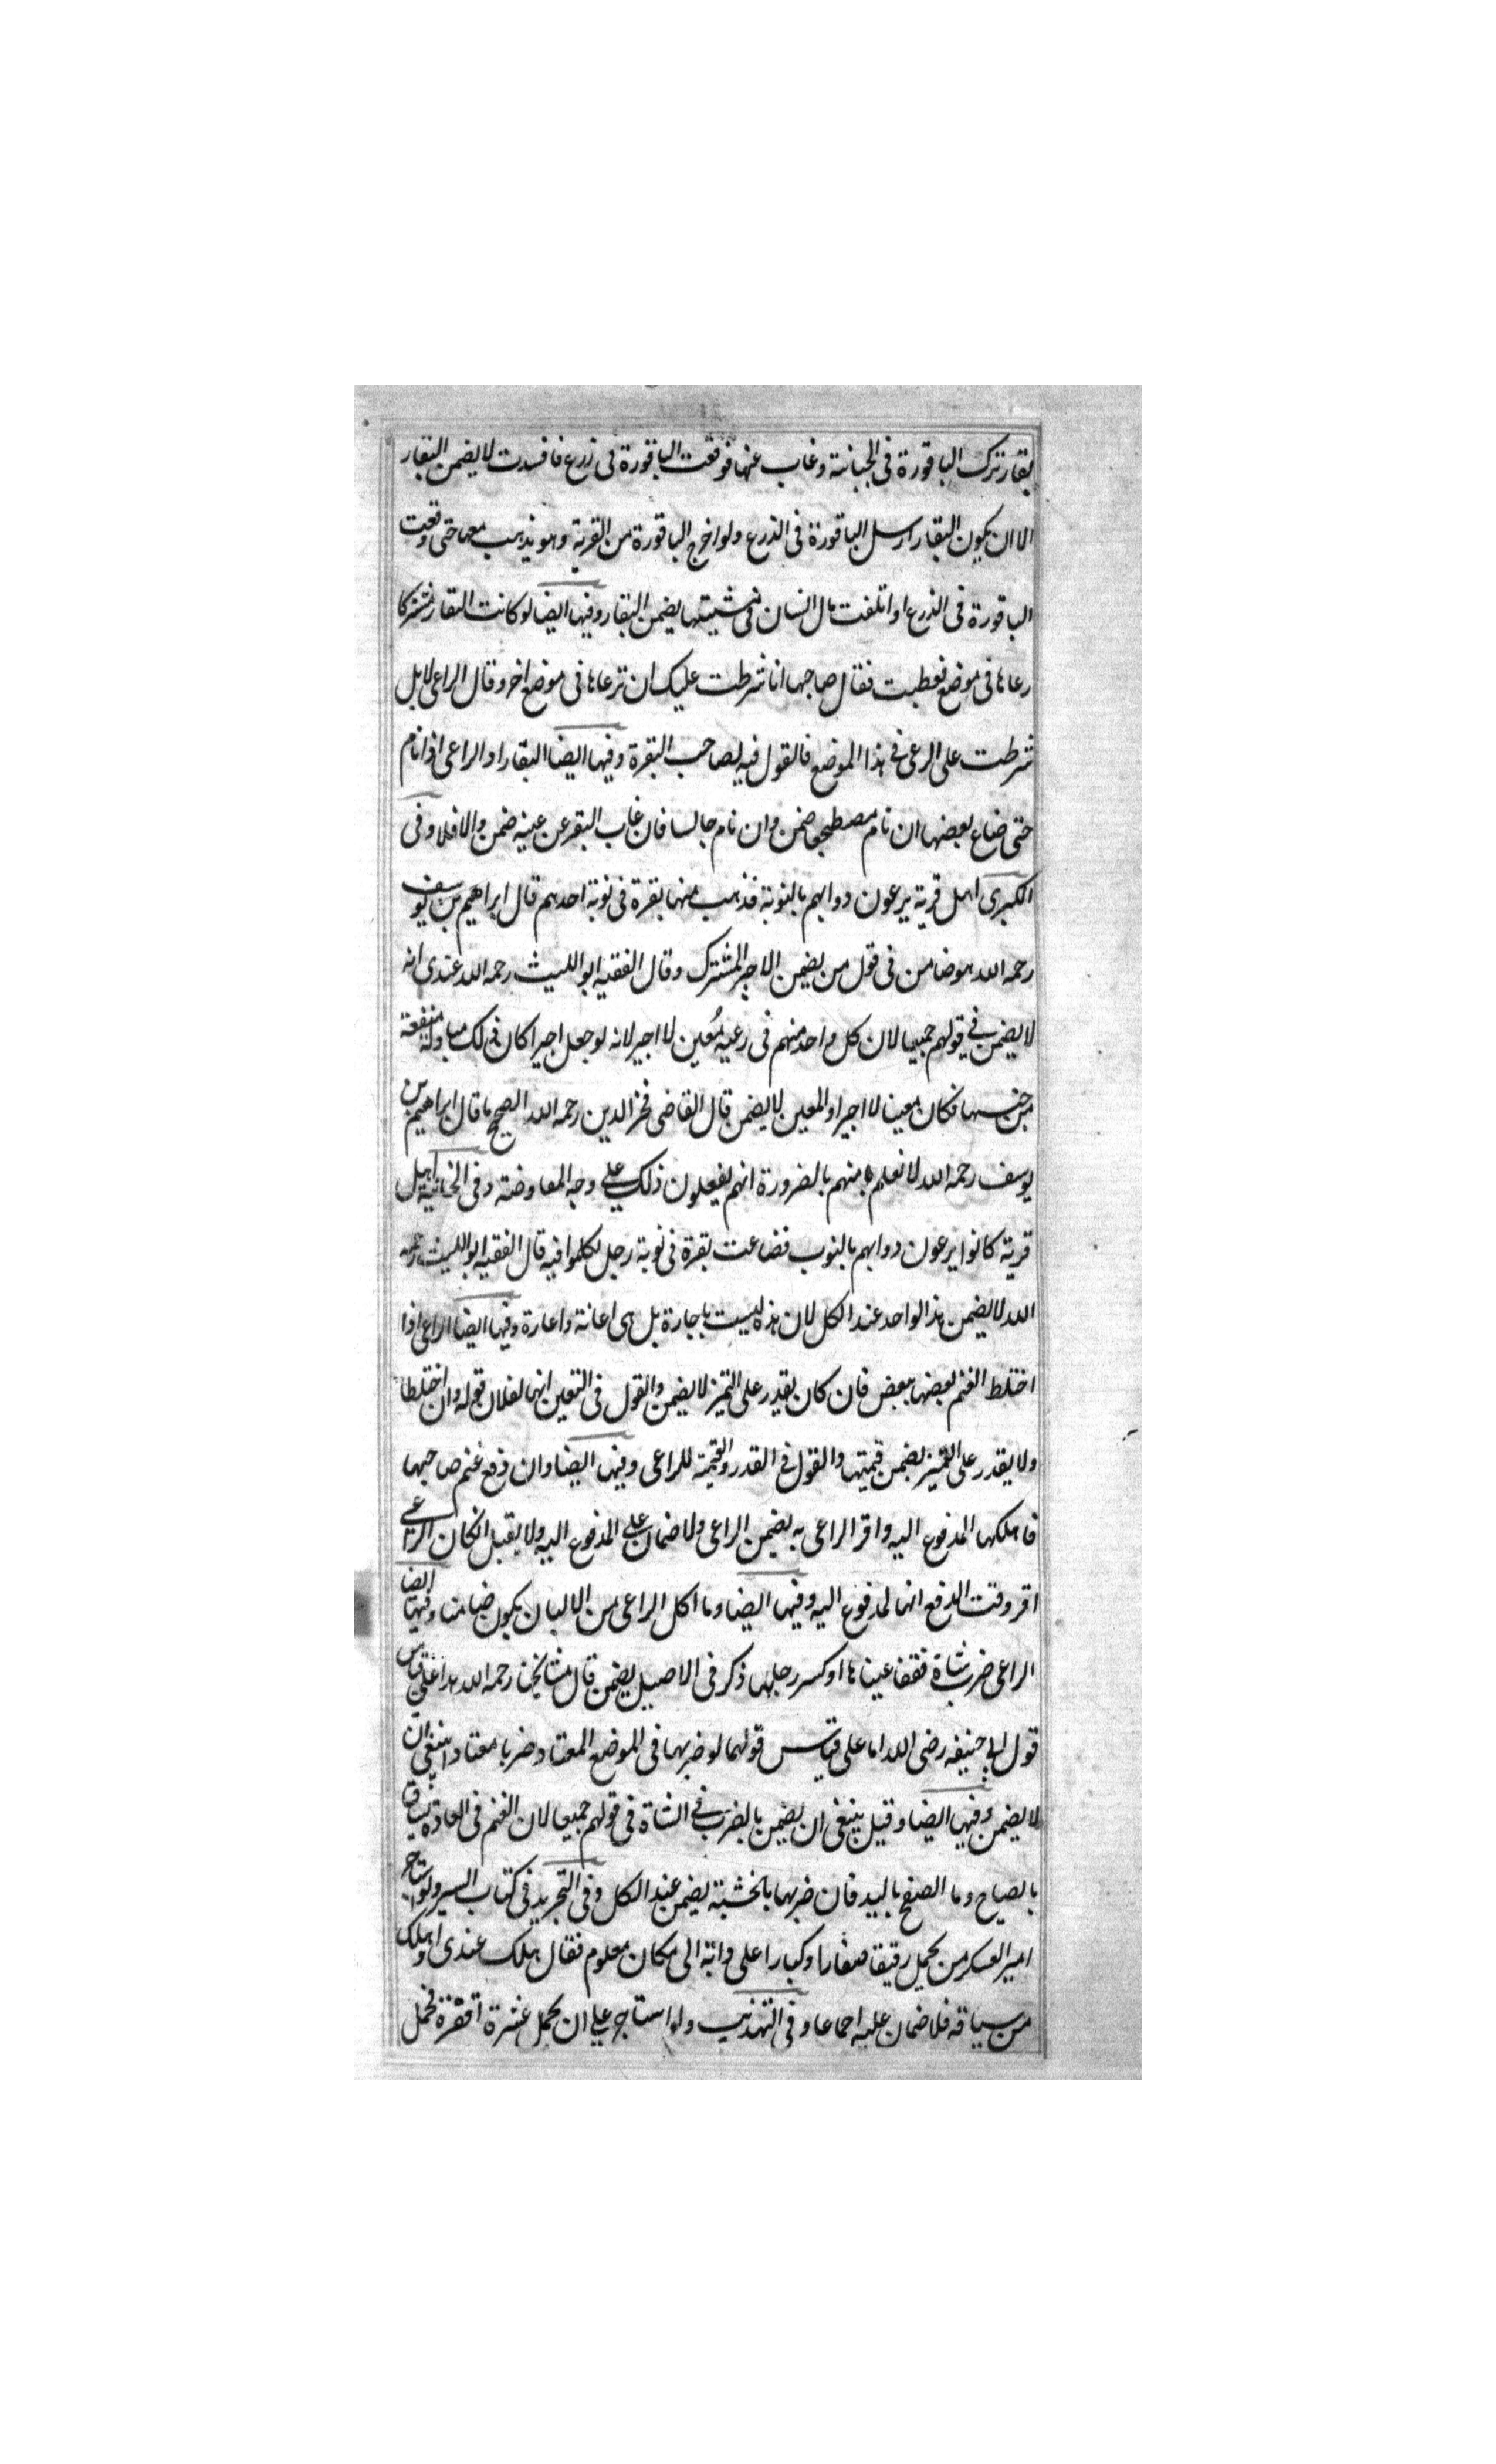 بقار ترك الباقورة فى الجبانة وغاب عنها فوقعت الباقورة فى زرع فافسدت لا يضمن البقار
الا ان يكون البقار ارسل الباقورة فى الذرع ولو اخرج الباقورة من القرية وهو يذهب معها حتى وقعت
الباقورة فى الذرع او اتلفت مال انسان فى مشيتها يضمن البقار وفيها ايضا لو كانت البقار مشتركا
رعاها فى موضع فعطبت فقال صاحبها انا شرطت عليك ان ترعاها فى موضع اخر وقال الراعى لا بل
شرطت على الرعى فى هذا الموضع فالقول فيه لصاحب البقرة وفيها ايضا البقار او الراعى اذا نام
حتى ضاع بعضها ان نام مضطجعا ضمن وان نام جالسا فان غاب البقر عن عينه ضمن والا فلا وفى
الكبرى اهل قرية يرعون دوابهم بالنوبة فذهب منها بقرة فى نوبة احدهم قال ابراهيم بن يوسف
رحمه الله هو ضامن فى قول من يضمن الاجير المشترك وقال الفقيه ابو الليث رحمه الله عندى انه
لا يضمن فى قولهم جميعا لان كل واحد منهم فى رعيه مُعين لا اجير لانه لو جعل اجيرا كان ذلك مبادلة منفعة
من جنسها فكان معينا لا اجيرا والمعين لا يضمن قال القاضى فخر الدين رحمه الله الصحيح ما قال ابراهيم بن
يوسف رحمه الله لانعلم منهم بالضرورة انهم يفعلون ذلك على وجه المعاوضة وفى الخانية اهل
قرية كانوا يرعون دوابهم بالنوب فضاعت بقرة فى نوبة رجل تكلموا فيه قال الفقيه ابو الليث رحمه
الله لا يضمن هذا الواحد عند الكل لان هذه ليست باجارة بل هى اعانة واعارة وفيها ايضا الراعى اذا
اختلط الغنم بعضها ببعض فان كان يقدر على التميز لا يضمن والقول فى التعين انها لفلان قوله وان اختلطا
ولا يقدر على التميز يضمن قيمتها والقول فى القدر والقيمة للراعى وفيها ايضا وان دفع غنم صاحبها
فاهلكها المدفوع اليه واقر الراعى به يضمن الراعى ولا ضمان على المدفوع اليه ولا يقبل ان كان الراعى
اقر وقت الدفع انها لمدفوع اليه وفيها ايضا وما اكل الراعى من الالبان يكون ضامنا وفيها ايضا
الراعى ضرب شاة ففقأ عيناها او كسر رجلها ذكر فى الاصيل يضمن قال مشايخنا رحمه الله هذا على قياس
قول ابى حنيفه رضى الله اما على قياس قولهما لو ضربها فى الموضع المعتاد ضربا معتادا ينبغى ان
لا يضمن وفيها ايضا وقيل ينبغى ان يضمن بالضرب فى الشاة فى قولهم جميعا لان الغنم فى العادة يساق
بالصياح وما الصفح باليد فان ضربها بالخشبة يضمن عند الكل وفى التجريد فى كتاب السير ولو استاجر
امير العسكر من يحمل رقيقا صغارا وكبارا على دابة الى مكان معلوم فقال هلك عندى او هلك
من سياقه فلا ضمان عليه اجماعا وفى التهذيب ولو استاجر على ان يحمل عشرة اقفزة فحمل